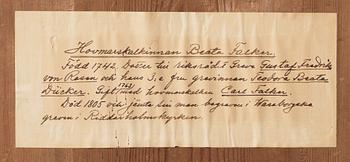 Hovmarskalkinnan Beata Falker.
Född 1742. Dotter till riksråd. Greve Gustaf Fredrik
von Rosen och hans 3:e fru grevinnan Teodora Beata
Dücker. Gift 1762 med hovmarskalken Carl Falker.
Död 1805 och jämte sin man begravd i Wasaborgska
graven i Riddarholmskyrkan.